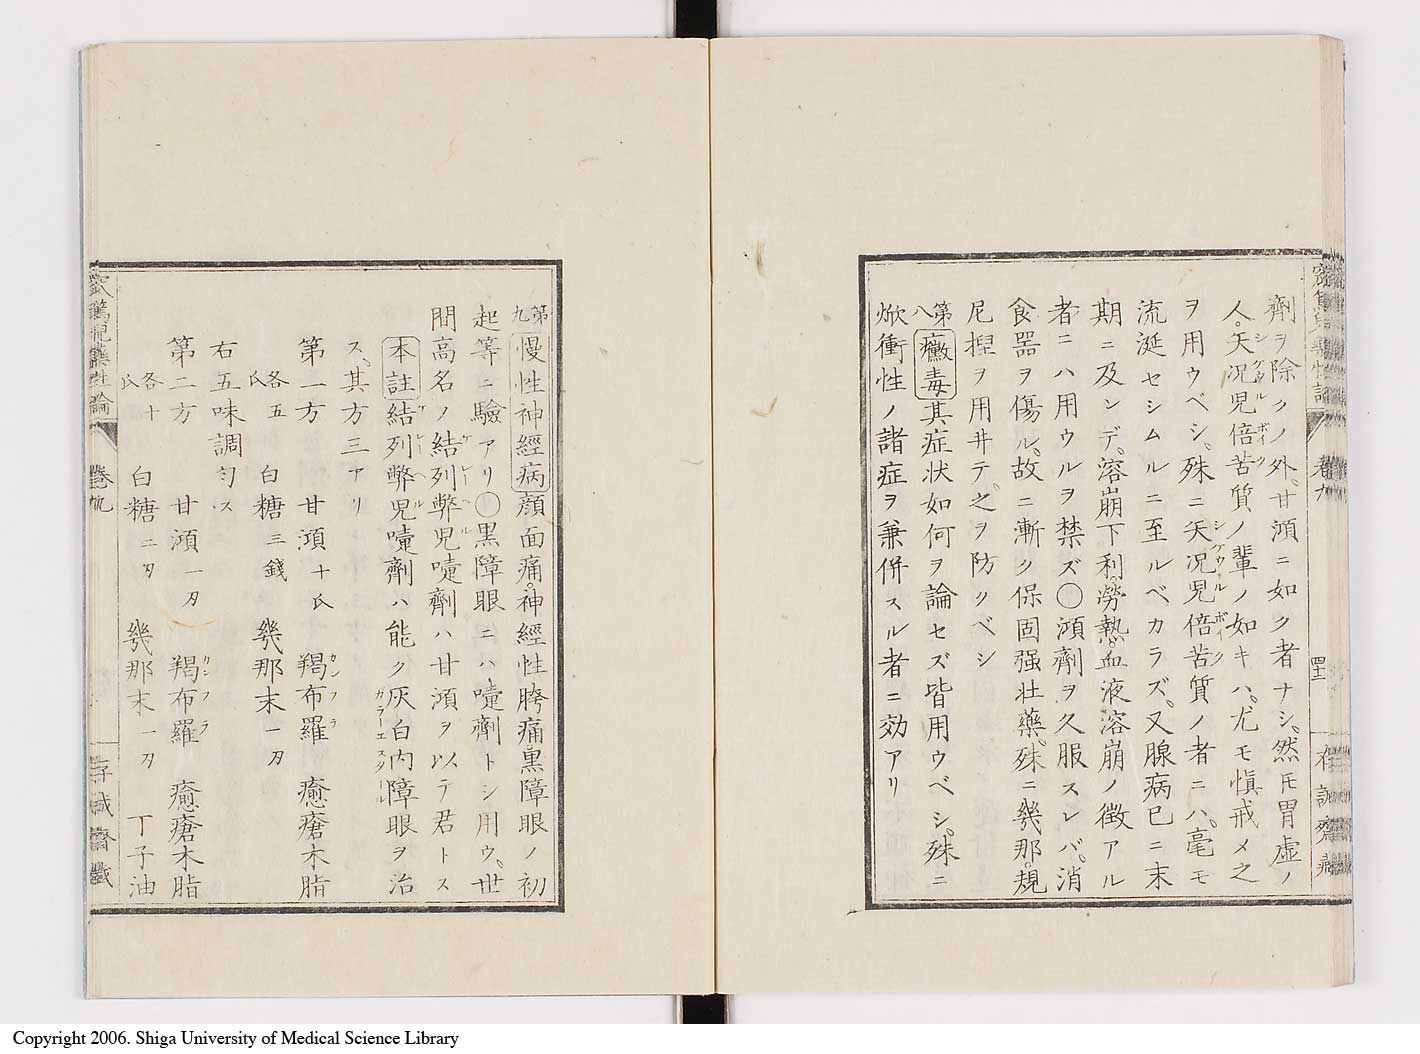 劑ヲ除クノ外、甘澒ニ如ク者ナシ。然𪜈胃虚ノ
人、矢况児倍苦質ノ輩ノ如キハ、尤モ愼戒メ之
ヲ用ウベシ。殊ニ矢况児倍苦質ノ者ニハ、毫モ
流涎セシムルニ至ルベカラズ。又腺病已ニ末
期ニ及ンデ、溶崩下利、勞熱、血液溶崩ノ徴アル
者ニハ用ウルヲ禁ズ〇澒劑ヲ久服スレバ、消
食器ヲ傷ル。故ニ漸ク保固强壮藥、殊ニ幾那、規
尼捏ヲ用井テ、之ヲ防クベシ
第八 黴毒其症状如何ヲ論セズ皆用ウベシ。殊ニ
焮衝性ノ諸症ヲ兼併スル者ニ効アリ
卷九
四十二
第九 慢性神經病顔面痛。神經性胯痛黒障眼ノ初
起等ニ驗アリ〇黒障眼ニハ嚏劑トシ用ウ。世
間高名ノ結列弊児嚏劑ハ甘澒ヲ以テ君トス
本註結列弊児嚏劑ハ能ク灰白内障眼ヲ治
ス。其方三アリ
第一方 甘澒十氏 羯布羅 癒瘡木脂
各五氏 白糖三錢 幾那末一刄
右五味調匀ス
第二方 甘澒一刄 羯布羅 癒瘡木脂
各十氏 白糖二刄 幾那末一刄 丁子油
卷九
Copyright 2006. Shiga University of Medical Science Library